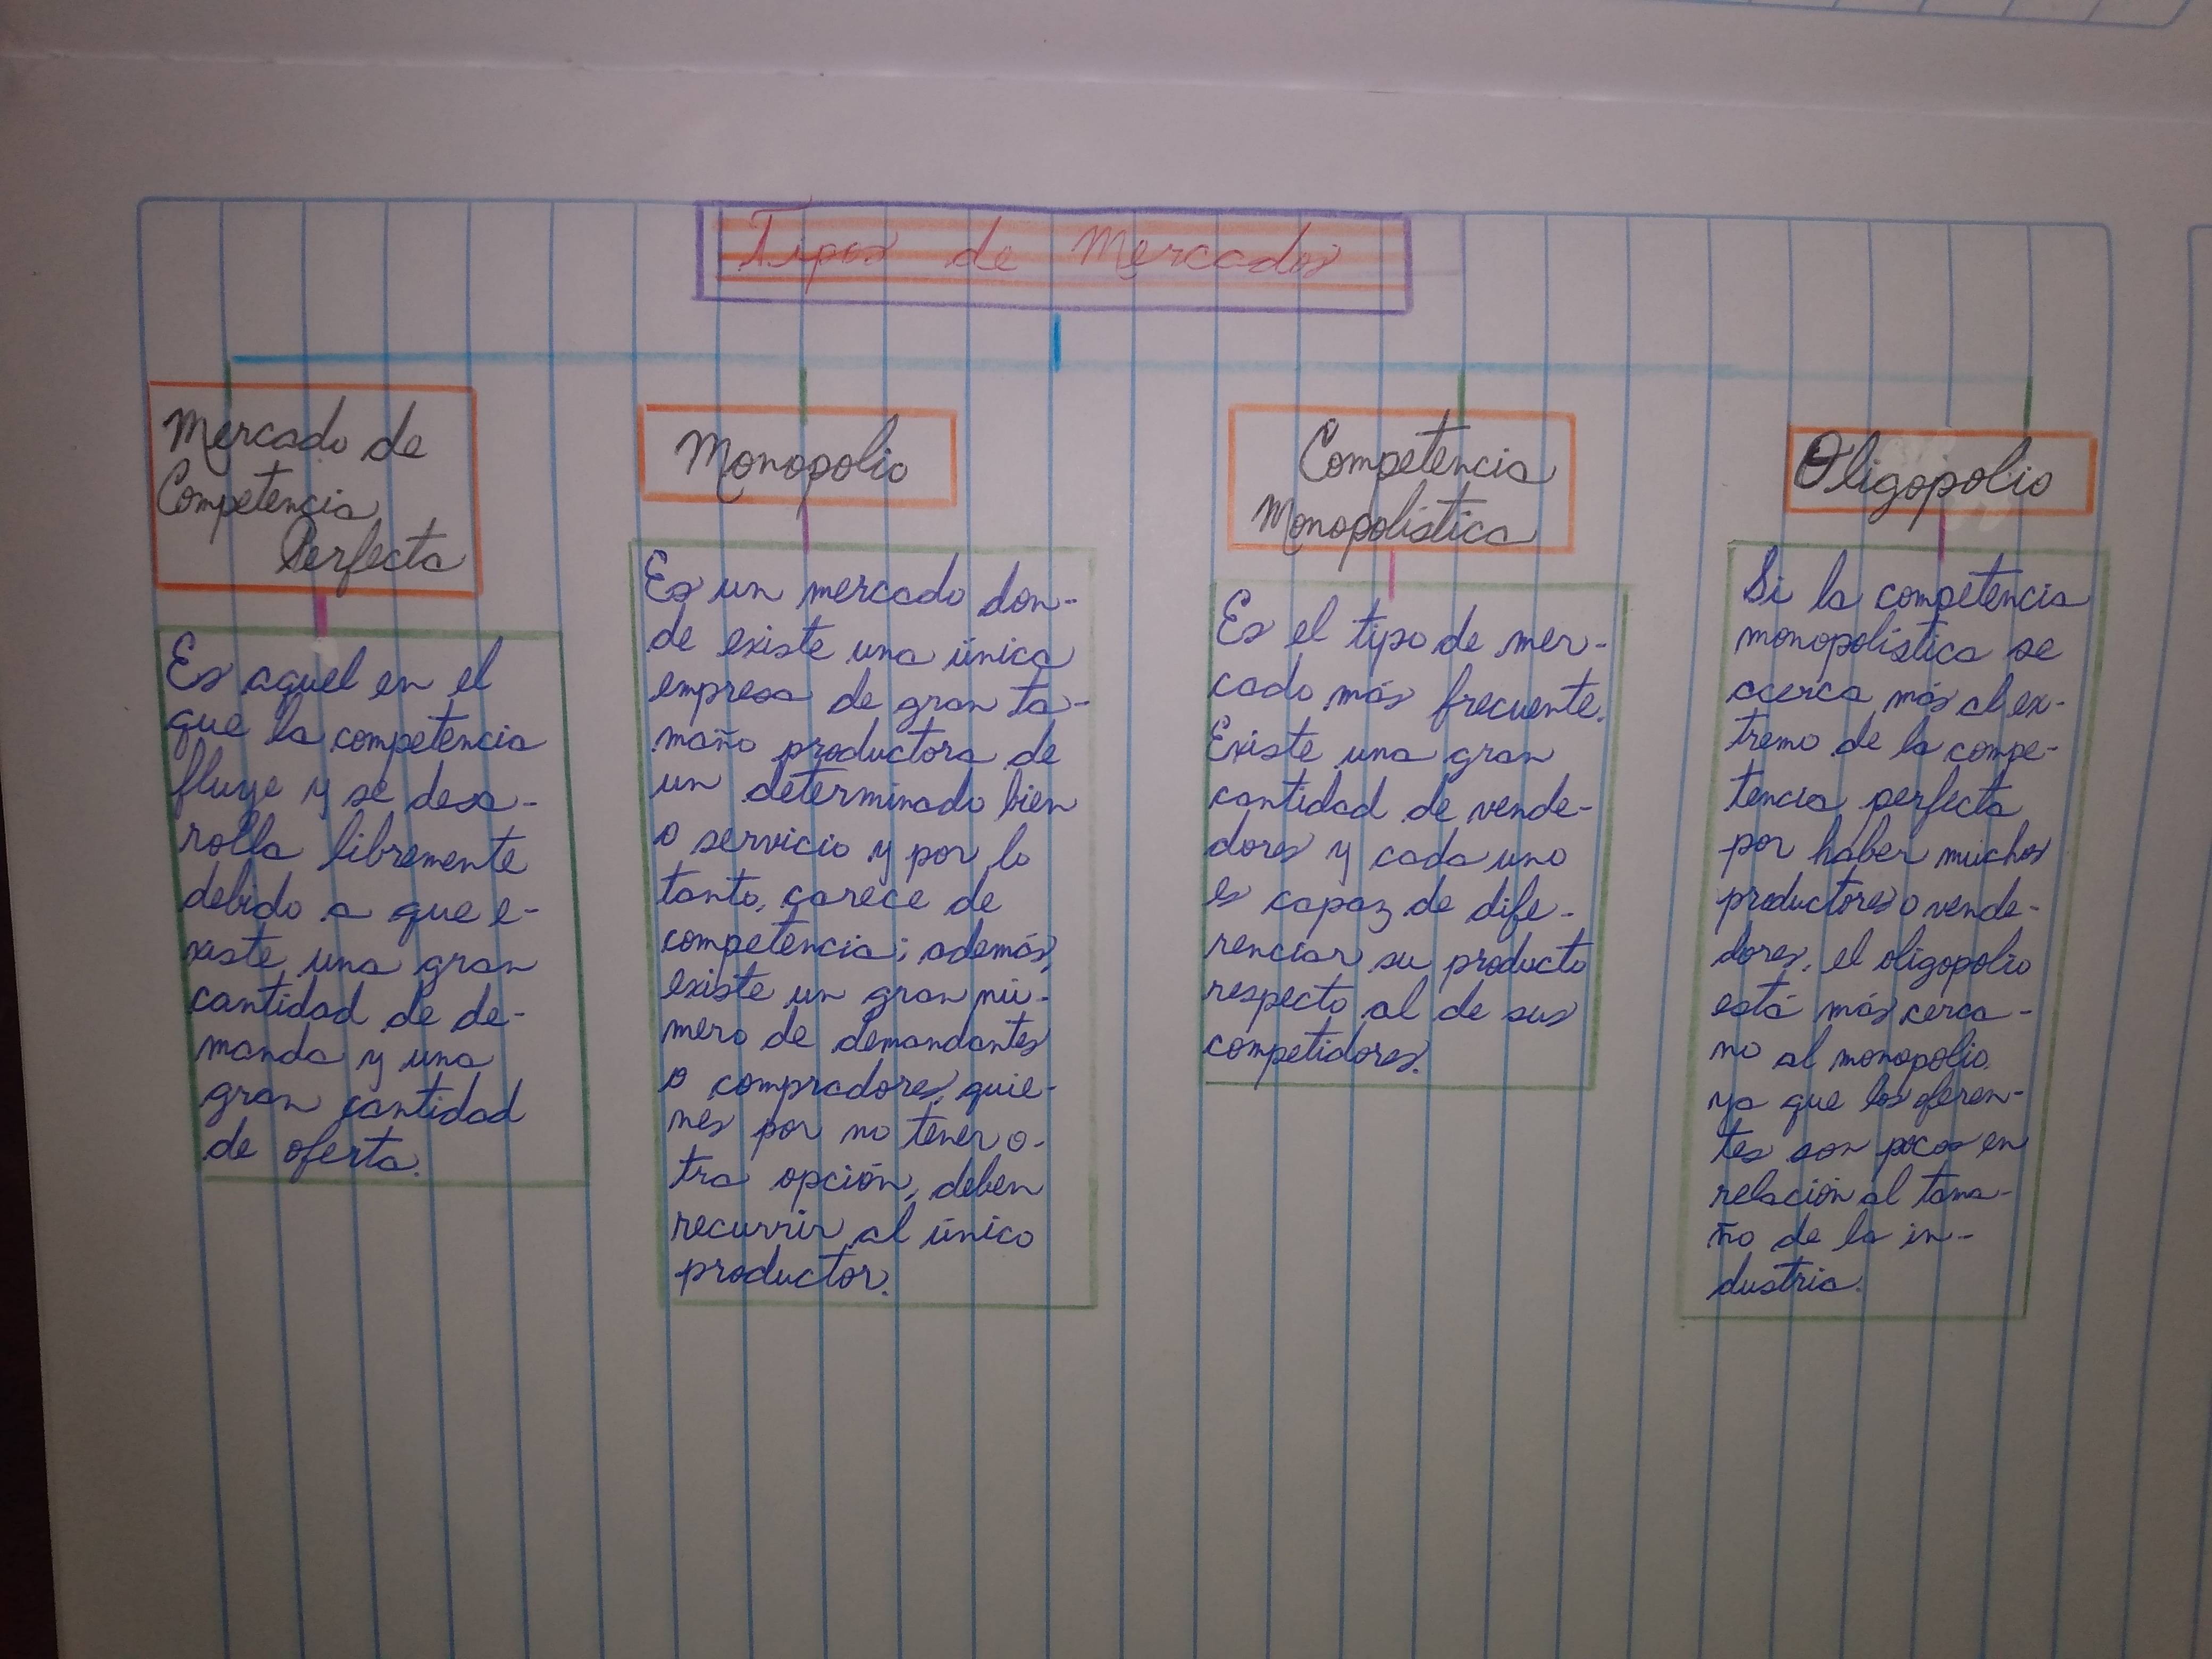 Tipos de Mercados
Mercado de
Competencia
Perfecta
Es aquel en el
que la competencia
fluye y se desa-
rolla libremente
debido a que e-
xiste una gran
cantidad de de-
manda y una
gran cantidad
de oferta.
Monopolio
Es un mercado don-
de existe una única
empresa de gran ta-
maño productora de
un determinado bien
o servicio y por lo
tanto, carece de
competencia; además,
existe un gran nú-
mero de demandantes
o compradores, quie-
nes por no tener o-
tra opción, deben
recurrir al único
productor.
Competencia
Monopolística
Es el tipo de mer-
cado más frecuente.
Existe una gran
cantidad de vende-
dores y cada uno
es capaz de dife-
renciar su producto
respecto al de sus
competidores.
Oligopolio
Si la competencia
monopolística se
acerca más al ex-
tremo de la compe-
tencia perfecta
por haber muchos
productores o vende-
dores, el oligopolio
está más cerca-
no al monopolio,
ya que los oferen-
tes son pocos en
relación al tama-
ño de la in-
dustria.